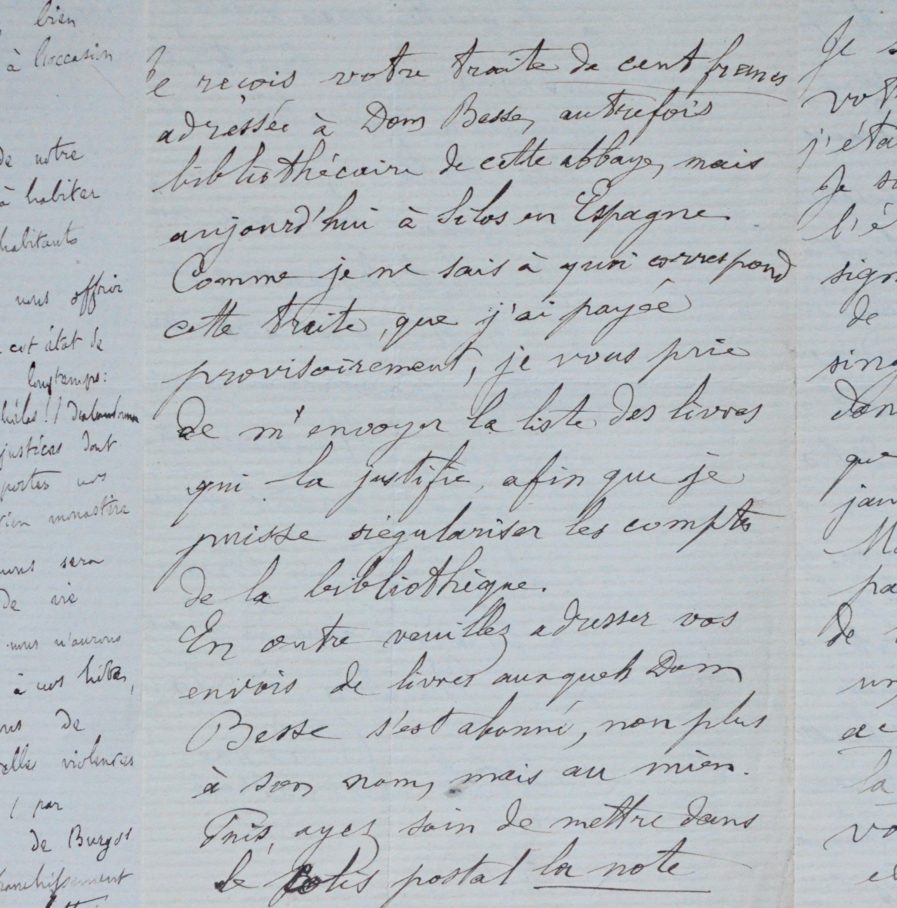 bien
à l'occasion
de notre
à habiter
habitants
nous offrir
cet état de
longtemps:
justices dont
portes nos
monastère
nous sera
de vie
nous n'aurons
à nos
de
violences
par
de Burgos
Je reçois votre traite de cent francs
adressée à Dom Besse, autrefois
bibliothécaire de cette abbaye, mais
aujourd'hui à Silos en Espagne.
Comme je ne sais à quoi correspond
cette traite, que j'ai payée
provisoirement, je vous prie
de m'envoyer la liste des livres
qui la justifie, afin que je
puisse régulariser les comptes
de la bibliothèque.
En outre veuillez adresser vos
envois de livres auxquels Dom
Besse s'est abonné, non plus
à son nom, mais au mien.
Puis, ayez soin de mettre dans
le colis postal la note
Je s
vot
j'éta
Je su
l'é
sign
de
sing
dan
que
jan
Ma
pa
de
un
de
la
vo
e